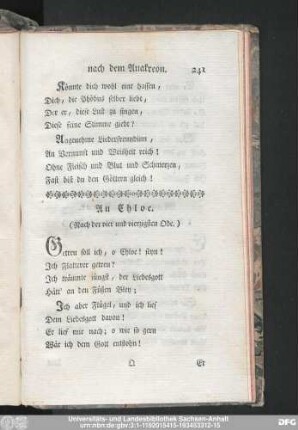 nach dem Anakreon. 241
Könnte dich wohl mit hassen,
Dich, die Phöbus selber liebt,
Der er, diese Lust zu singen,
Diese feine Stimme giebt?
Angenehme Liederfreundinn,
An Vernunft und Weisheit reich!
Ohne Fleisch und Blut und Schmerzen,
Fast bist du den Göttern gleich!
An Chloe.
(Nach der vier und vierzigsten Ode.)
Getreu soll ich, o Chloe! seyn!
Ich Flatterer getreu?
Ich träumte jüngst, der Liebesgott
Hätt' an den Füßen Bley;
Ich aber Flügel, und ich lief
Dem Liebesgott davon!
Er lief mir nach; o wie so gern
Wär ich dem Gott entflohn!
Q Er
Universitäts- und Landesbibliothek Sachsen-Anhalt
urn:nbn:de:gbv:3:1-1192015415-183453212-15